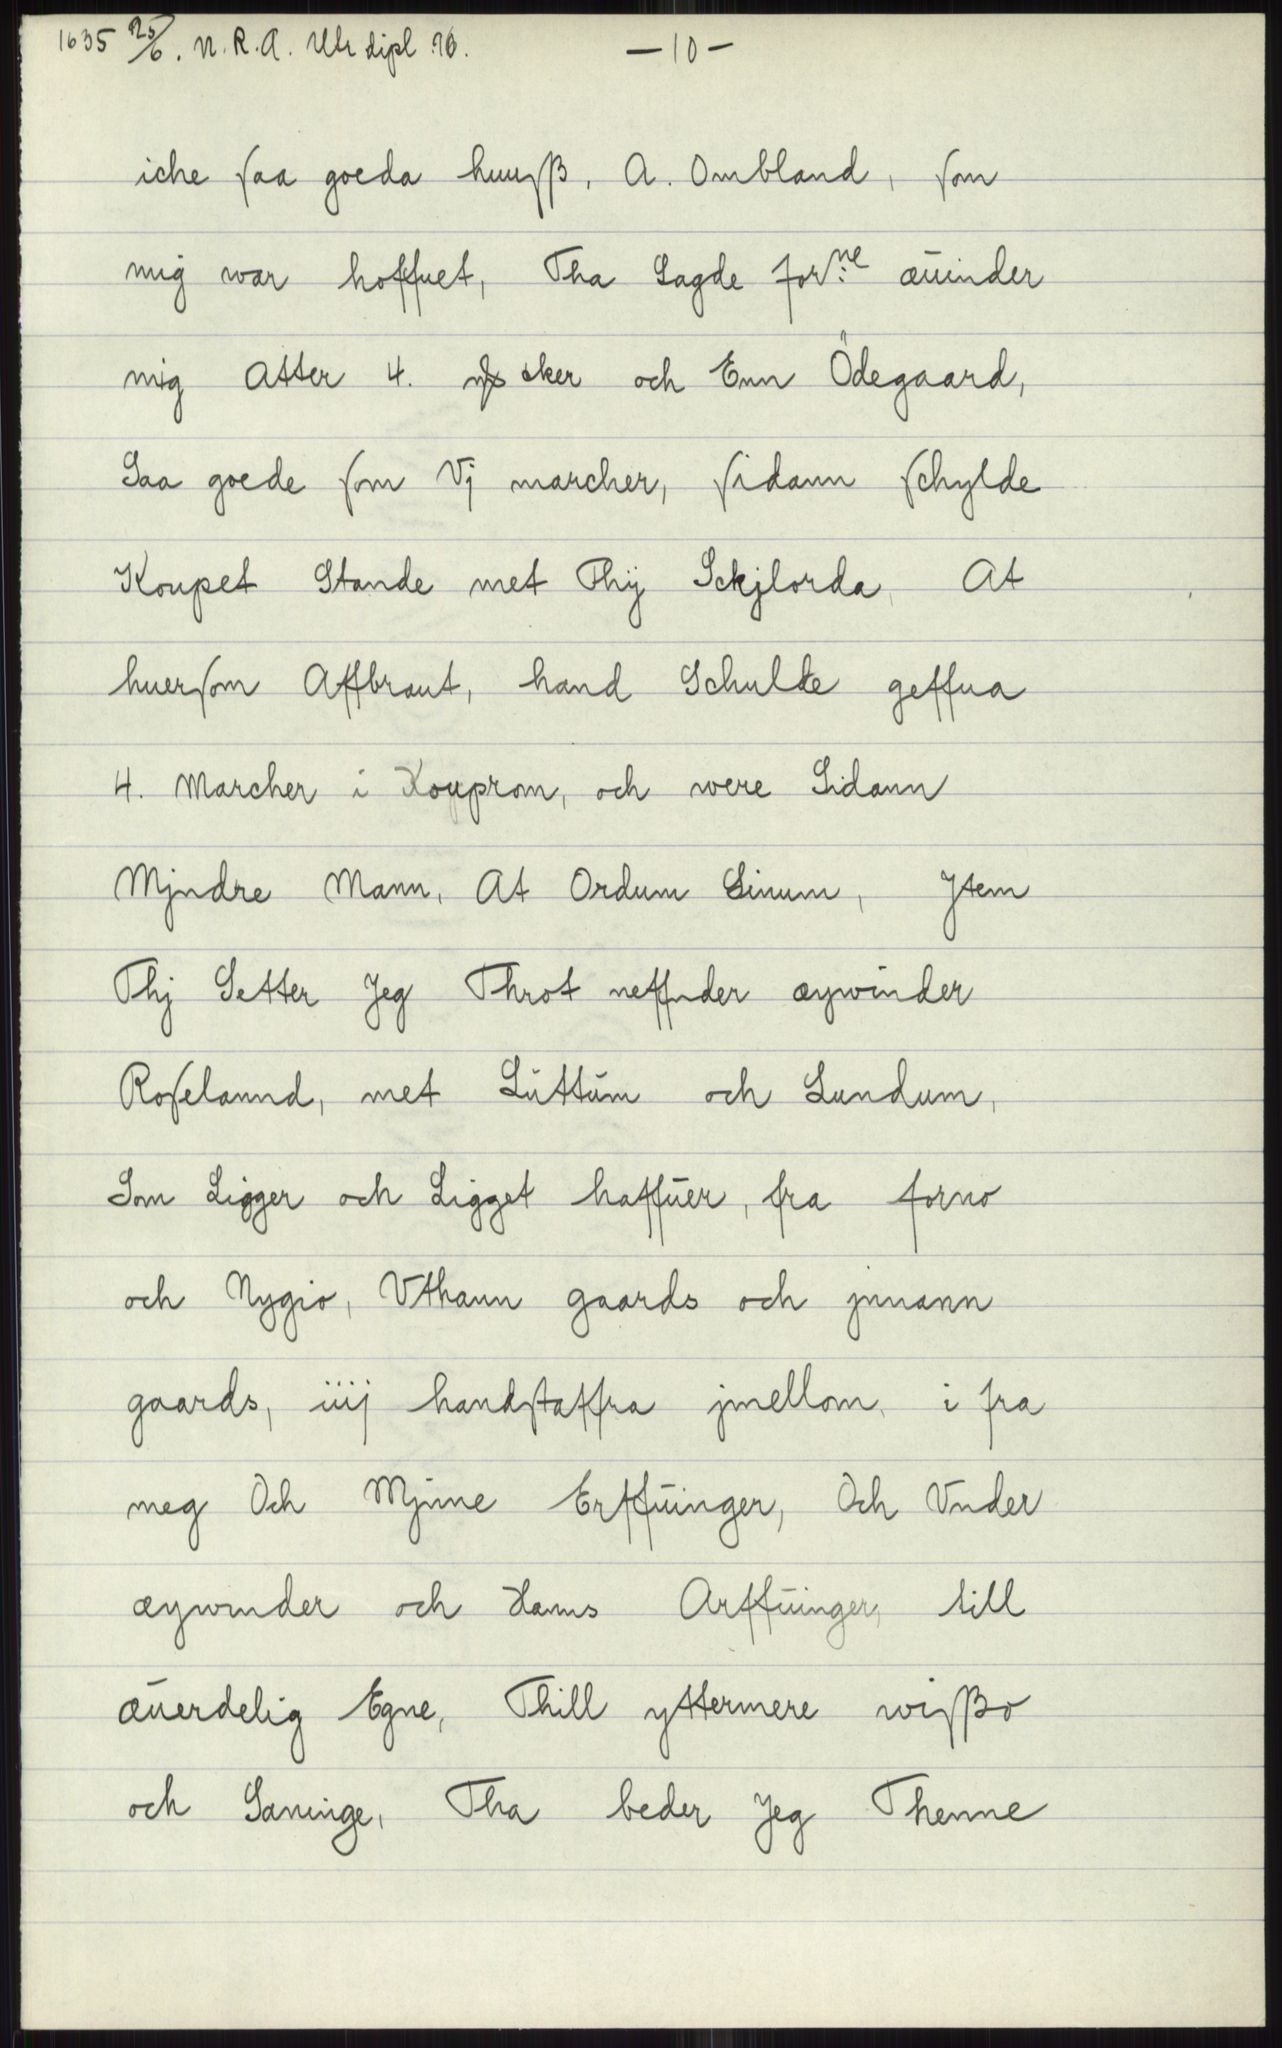 1635 25/6. N. R. A. Utr dipl 76. — 10 —
iche saa goeda huusß, A. Ombland, som
mig war hoffuet, Tha Sagde forne: æuinder
mig Atter 4. sker och Enn Ödegaard,
Saa goede som Vj marcher, sidann schylde
Koupet Stande met Thij Sckjlorda, At
huersom Affbraut, hand Schulde geffua
4. Marcher i Kouprom, och were Sidann
Mjndre Mann, At Ordum Sinum, Jtem
Thj Setter Jeg Throt neffnder æywinder
Roselannd, met Luttum och Lundum,
Som Ligger och Ligget haffuer, fra forno
och Nygio, Vthann gaards och jnnann
gaards, iiij handstaffra jmellom, i fra
meg Och Mjnne Erffuinger, Och Vnder
æywinder och Hanns Arffuinger, till
æuerdelig Egne, Thill yttermere wisßo
och Saninge, Tha beder Jeg Thenne